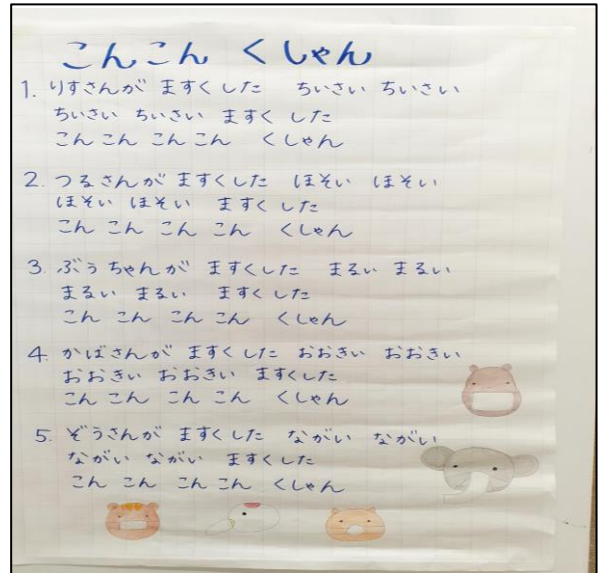 こんこん くしゃん
1. りすさんが ますくした ちいさい ちいさい
ちいさい ちいさい ますく した
こん こん こん こん くしゃん
2. つるさんが ますくした ほそい ほそい
ほそい ほそい ますく した
こん こん こん こん くしゃん
3. ぶうちゃんが ますくした まるい まるい
まるい まるい ますく した
こん こん こん こん くしゃん
4. かばさんが ますくした おおきい おおきい
おおきい おおきい ますくした
こん こん こん こん くしゃん
5. ぞうさんが ますくした ながい ながい
ながい ながい ますくした
こん こん こん こん くしゃん